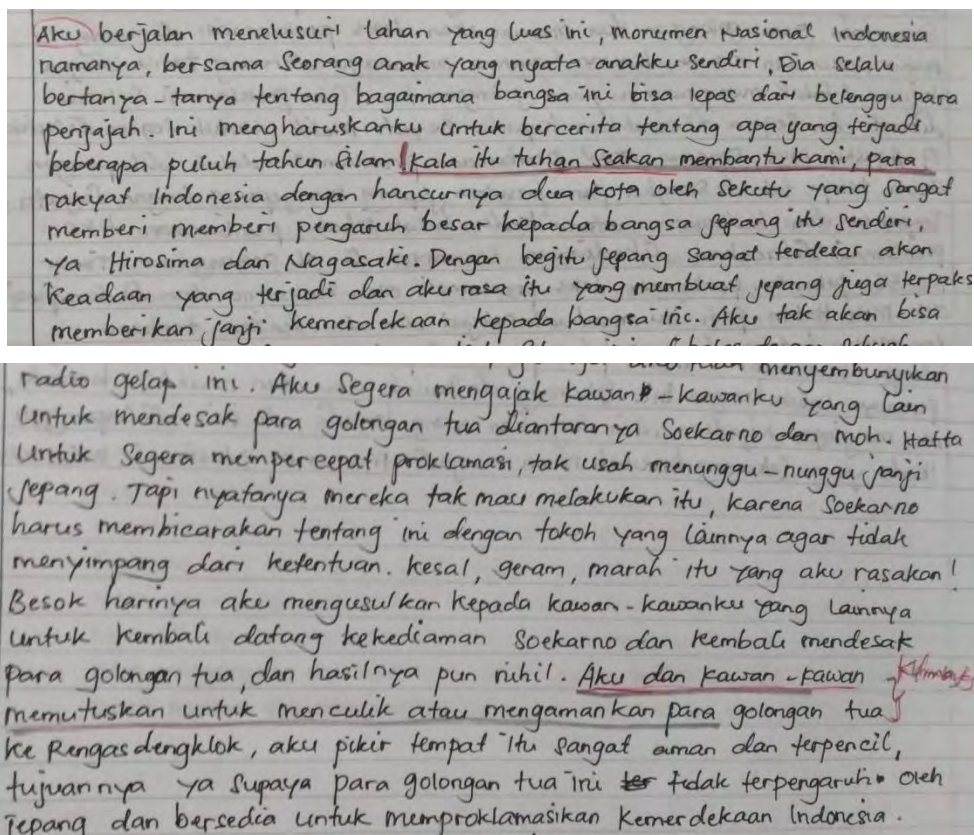 Aku berjalan menelusuri lahan yang luas ini, monumen Nasional Indonesia
namanya, bersama seorang anak yang nyata anakku sendiri, Dia selalu
bertanya-tanya tentang bagaimana bangsa ini bisa lepas dari belenggu para
penjajah. Ini mengharuskanku untuk bercerita tentang apa yang terjadi
beberapa puluh tahun silam kala itu tuhan seakan membantu kami, para
rakyat Indonesia dengan hancurnya dua kota oleh sekutu yang sangat
memberi memberi pengaruh besar kepada bangsa jepang itu senderi,
ya Hirosima dan Nagasaki. Dengan begitu jepang sangat terdesar akan
keadaan yang terjadi dan aku rasa itu yang membuat jepang juga terpaks
memberikan janji kemerdekaan kepada bangsa ini. Aku tak akan bisa
menyembunyikan
radio gelap ini. Aku segera mengajak kawan-kawanku yang lain
untuk mendesak para golongan tua diantaranya Soekarno dan moh. Hatta
untuk segera mempercepat proklamasi, tak usah menunggu-nunggu janji
jepang. Tapi nyatanya mereka tak mau melakukan itu, karena Soekarno
harus membicarakan tentang ini dengan tokoh yang lainnya agar tidak
menyimpang dari ketentuan. kesal, geram, marah itu yang aku rasakan!
Besok harinya aku mengusulkan kepada kawan-kawanku yang lainnya
untuk kembali datang kekediaman Soekarno dan kembali mendesak
para golongan tua, dan hasilnya pun nihil. Aku dan kawan-kawan
memutuskan untuk menculik atau mengamankan para golongan tua
ke Rengasdengklok, aku pikir tempat itu sangat aman dan terpencil,
tujuannya ya supaya para golongan tua ini tidak terpengaruh oleh
Jepang dan bersedia untuk memproklamasikan kemerdekaan Indonesia.